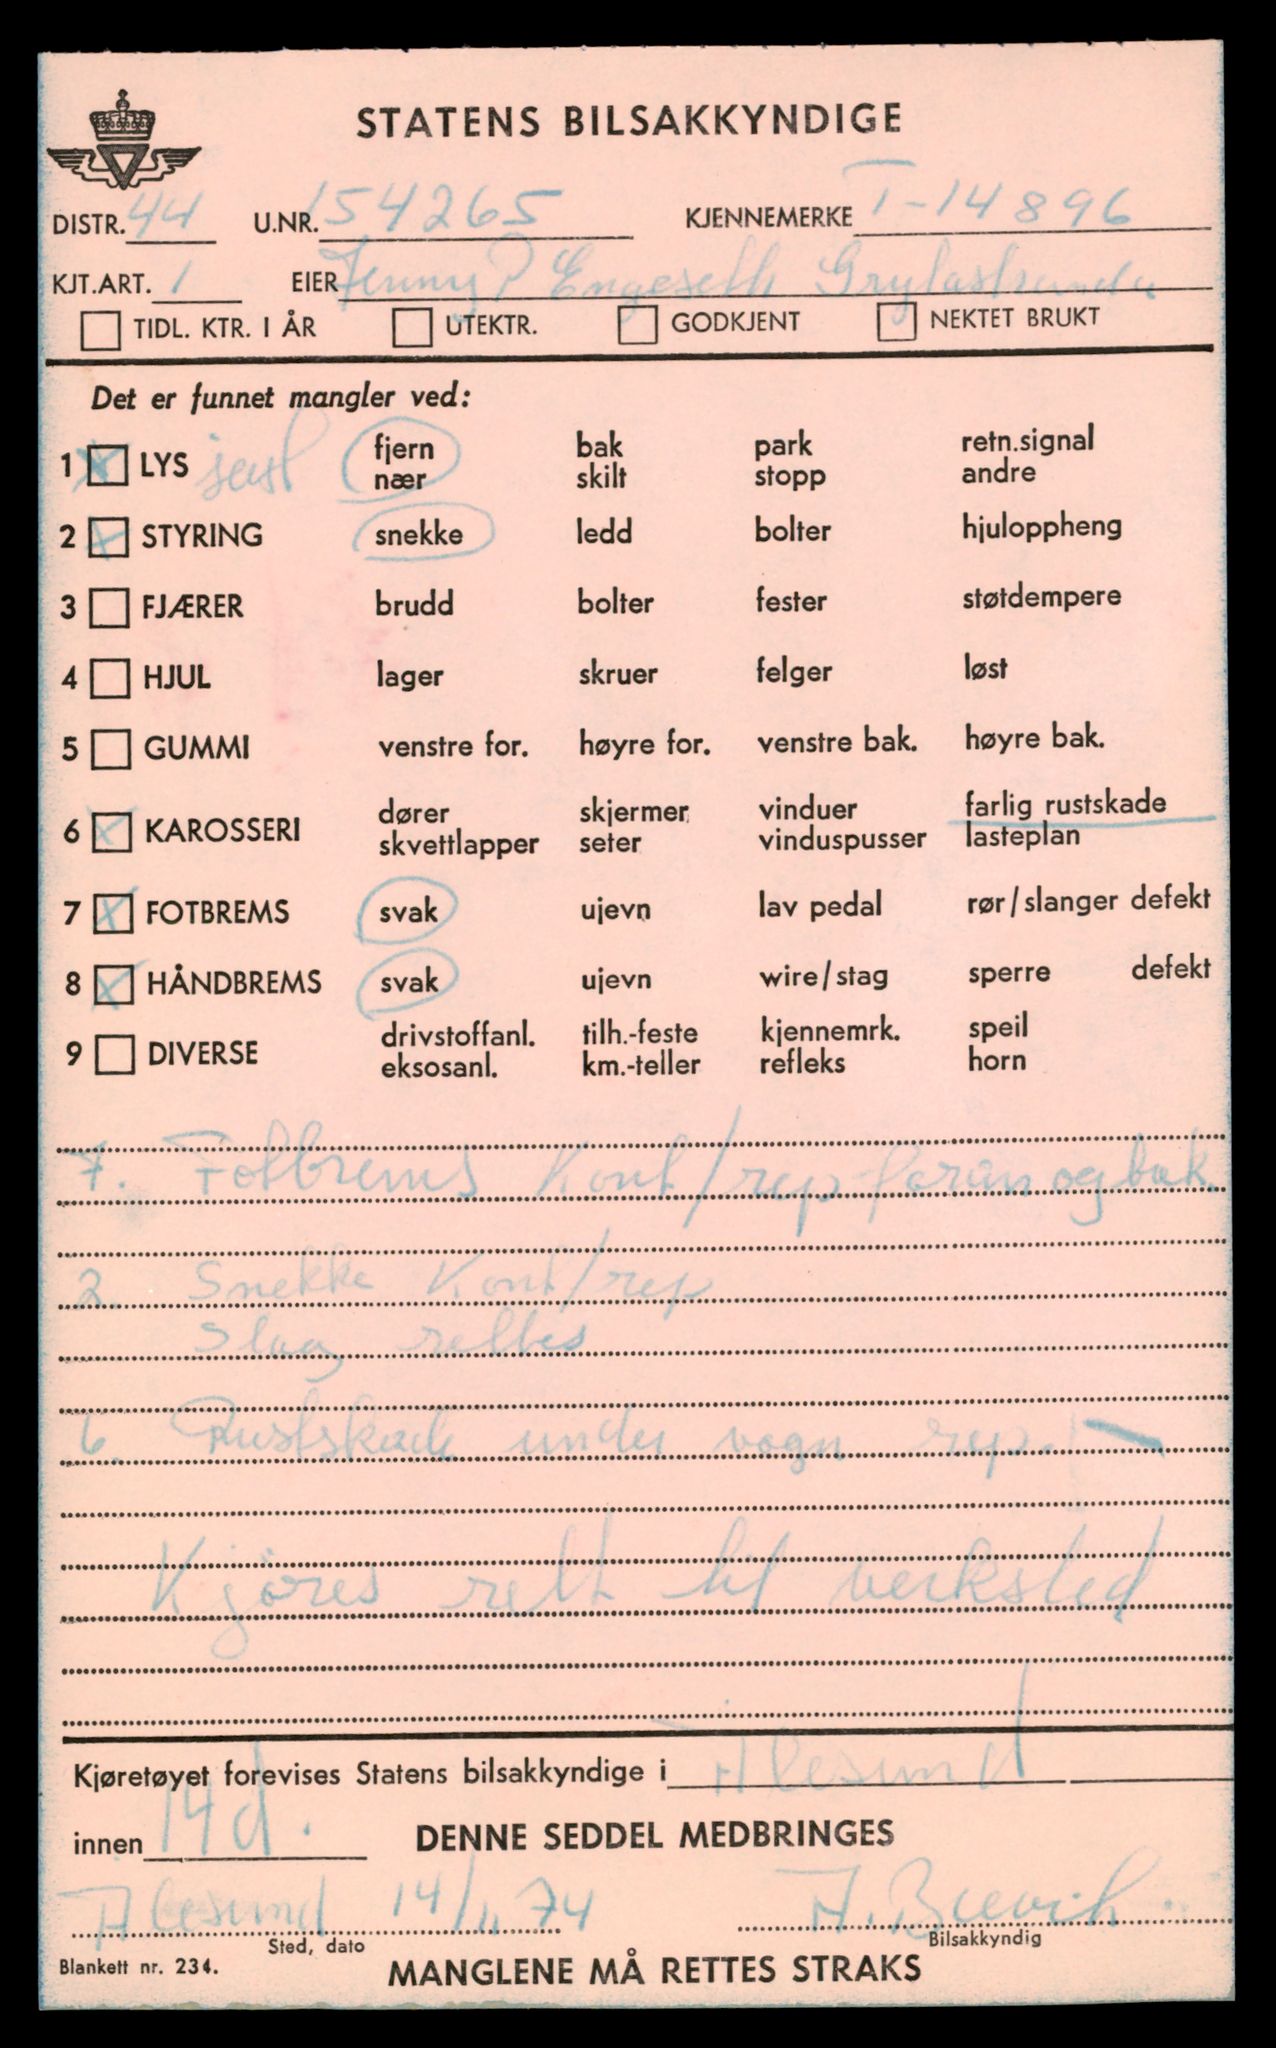 STATENS BILSAKKYNDIGE
DISTR. 44 U.NR. 154265 KJENNEMERKE T-14896
KJT.ART. 1 EIER Jenny P Engeseth Grytastranda
TIDL. KTR. I ÅR UTEKTR. GODKJENT NEKTET BRUKT
Det er funnet mangler ved:
1 LYS just fjern bak park retn.signal
nær skilt stopp andre
2 STYRING snekke ledd bolter hjuloppheng
3 FJÆRER brudd bolter fester støtdempere
4 HJUL lager skruer felger løst
5 GUMMI venstre for. høyre for. venstre bak. høyre bak.
6 KAROSSERI dører skjermer vinduer farlig rustskade
skvettlapper seter vinduspusser lasteplan
7 FOTBREMS svak ujevn lav pedal rør/slanger defekt
8 HÅNDBREMS svak ujevn wire/stag sperre defekt
9 DIVERSE drivstoffanl. tilh.-feste kjennemrk. speil
eksosanl. km.-teller refleks horn
7. Fotbrems Kont/rep foran og bak.
2 Snekke Kont/rep
Slag rettes
6 Rustskade under vogn rep.
Kjöres rett til verksted
Kjøretøyet forevises Statens bilsakkyndige i Ålesund
innen 14 d. DENNE SEDDEL MEDBRINGES
Ålesund 14/11 74 A. Brevik
Sted, dato Bilsakkyndig
Blankett nr. 234. MANGLENE MÅ RETTES STRAKS